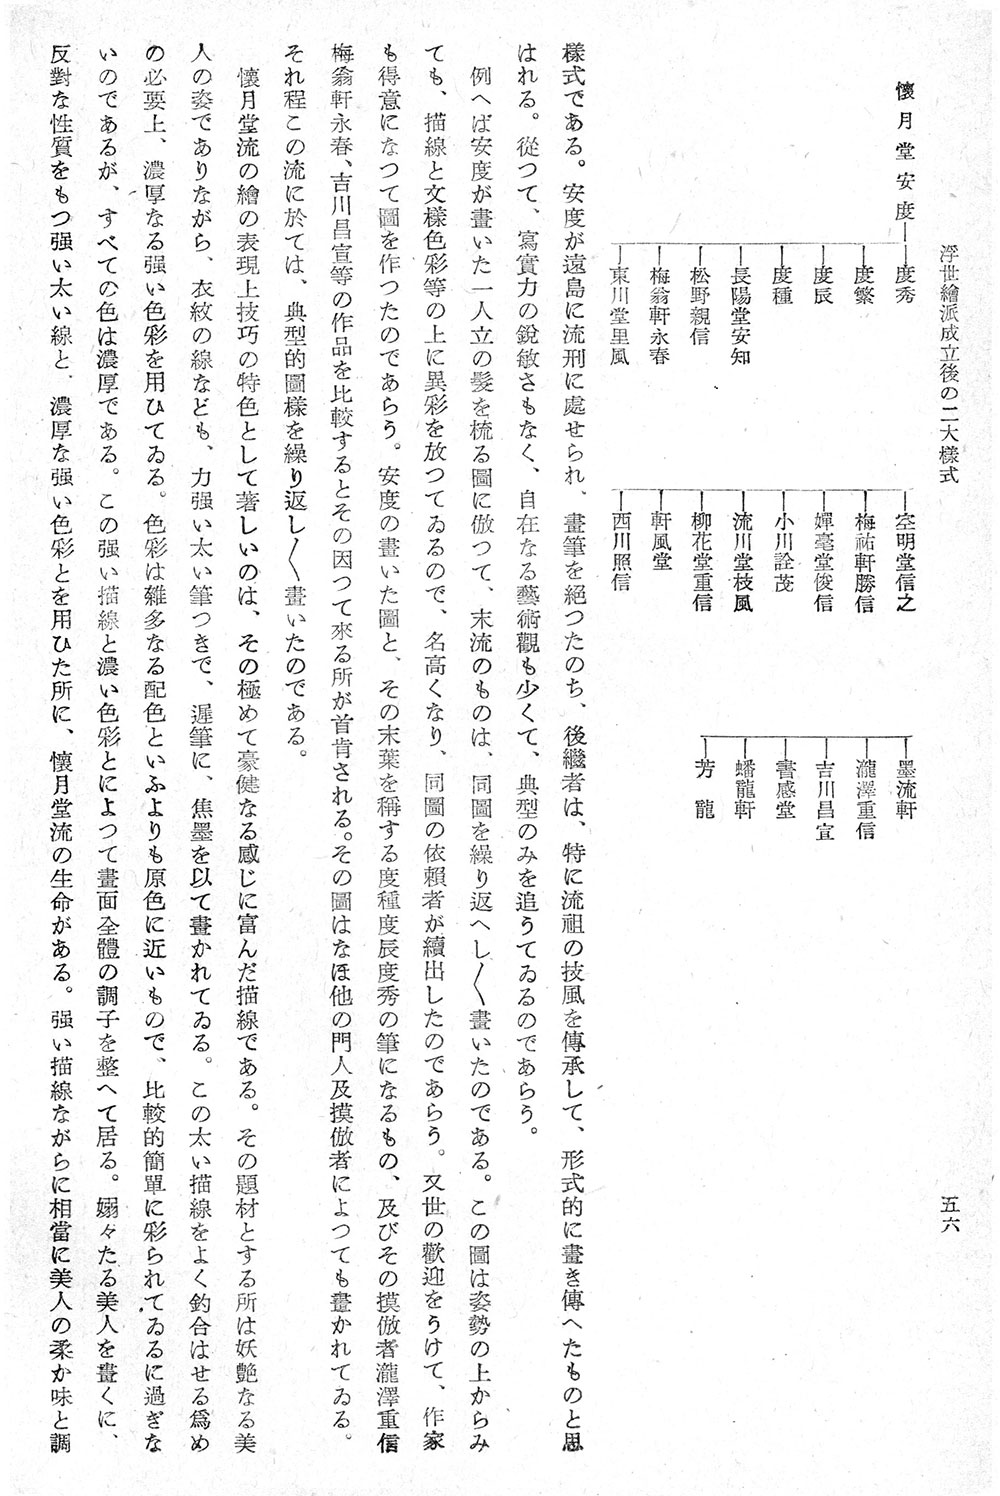 浮世繪派成立後の二大樣式
五六
懷月堂安度
度秀
度繁
度辰
度種
長陽堂安知
松野親信
梅翁軒永春
東川堂里風
空明堂信之
梅祐軒勝信
嬋毫堂俊信
小川詮茂
流川堂枝風
柳花堂重信
軒風堂
西川照信
墨流軒
瀧澤重信
吉川昌宣
書感堂
蟠龍軒
芳龍
樣式である。安度が遠島に流刑に處せられ、畫筆を絕つたのち、後繼者は、特に流祖の技風を傳承して、形式的に畫き傳へたものと思
はれる。從つて、寫實力の銳敏さもなく、自在なる藝術觀も少くて、典型のみを追うてゐるのであらう。
例へば安度が畫いた一人立の髮を梳る圖に倣つて、末流のものは、同圖を繰り返へし〱畫いたのである。この圖は姿勢の上からみ
ても、描線と文樣色彩等の上に異彩を放つてゐるので、名高くなり、同圖の依賴者が續出したのであらう。又世の歡迎をうけて、作家
も得意になつて圖を作つたのであらう。安度の畫いた圖と、その末葉を稱する度種度辰度秀の筆になるもの、及びその摸倣者瀧澤重信
梅翁軒永春、吉川昌宣等の作品を比較するとその因つて來る所が首肯される。その圖はなほ他の門人及摸倣者によつても畫かれてゐる。
それ程この流に於ては、典型的圖樣を繰り返し〱畫いたのである。
懷月堂流の繪の表現上技巧の特色として著しいのは、その極めて豪健なる感じに富んだ描線である。その題材とする所は妖艷なる美
人の姿でありながら、衣紋の線なども、力强い太い筆つきで、遲筆に、焦墨を以て畫かれてゐる。この太い描線をよく釣合はせる爲め
の必要上、濃厚なる强い色彩を用ひてゐる。色彩は雜多なる配色といふよりも原色に近いもので、比較的簡單に彩られてゐるに過ぎな
いのであるが、すべての色は濃厚である。この强い描線と濃い色彩とによつて畫面全體の調子を整へて居る。嫋々たる美人を畫くに、
反對な性質をもつ强い太い線と、濃厚な强い色彩とを用ひた所に、懷月堂流の生命がある。强い描線ながらに相當に美人の柔か味と調